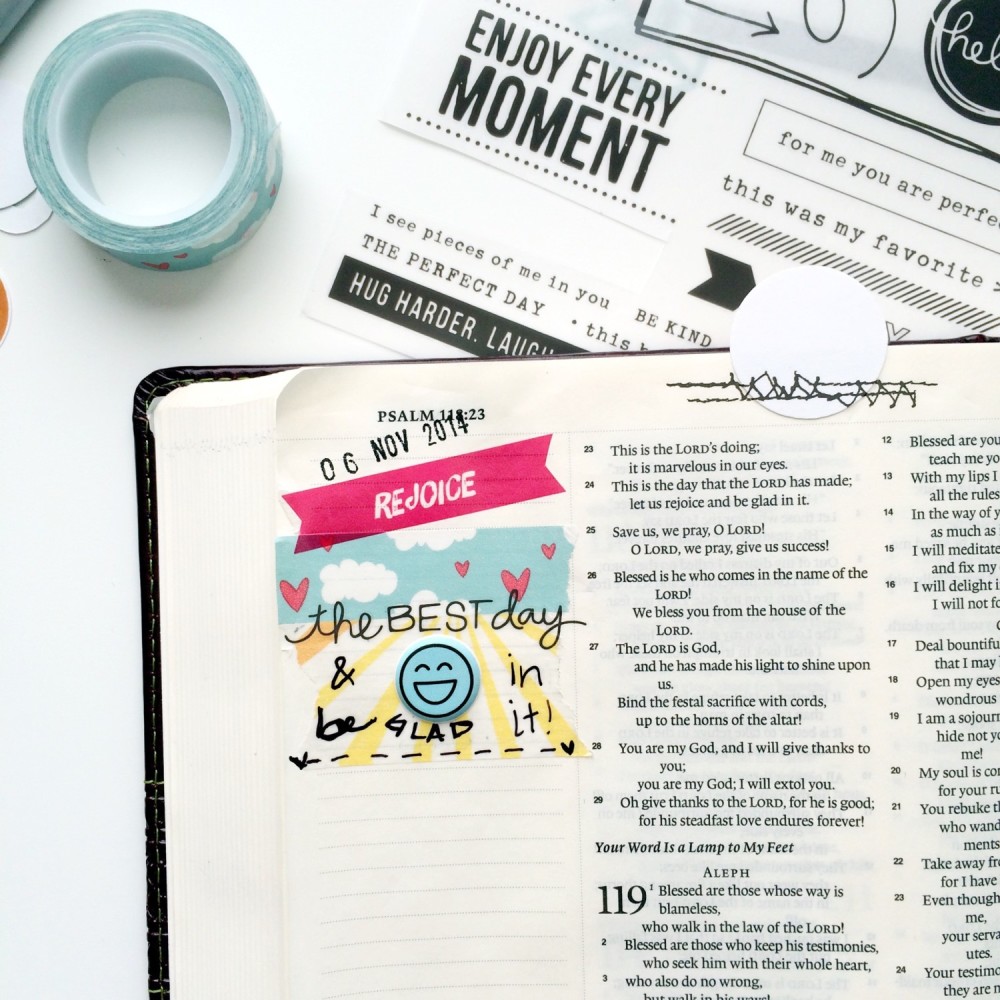 ENJOY EVERY
MOMENT
for me you are
this was my favorite >
I see pieces of me in you
THE PERFECT DAY
BE KIND
HUG HARDER.
• this
PSALM 118:23
06 NOV 2014
REJOICE
the BEST day
& in
be GLAD it!
23 This is the LORD's doing;
it is marvelous in our eyes.
24 This is the day that the LORD has made;
let us rejoice and be glad in it.
25 Save us, we pray, O LORD!
O LORD, we pray, give us success!
26 Blessed is he who comes in the name of the
LORD!
We bless you from the house of the
LORD.
27 The LORD is God,
and he has made his light to shine upon
us.
Bind the festal sacrifice with cords,
up to the horns of the altar!
28 You are my God, and I will give thanks to
you;
you are my God; I will extol you.
29 Oh give thanks to the LORD, for he is good;
for his steadfast love endures forever!
Your Word Is a Lamp to My Feet
ALEPH
119 1 Blessed are those whose way is
blameless,
who walk in the law of the LORD!
2 Blessed are those who keep his testimonies,
who seek him with their whole heart,
3 who also do no wrong,
but walk in his ways!
12 Blessed are you
teach me
13 With my lips I
all the rules
14 In the way of
as much as
15 I will meditate
and fix my
16 I will delight
I will not
17 Deal
that I may
18 Open my eyes
wondrous
19 I am a
hide not
me!
20 My soul is
for your
21 You rebuke
who
22 Take away
for I have
23 Even
me,
your
utes.
24 Your
they are